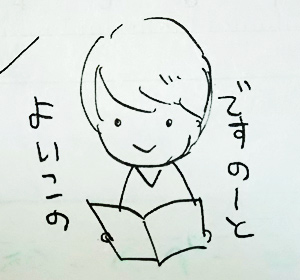 よいこの
ですのーと